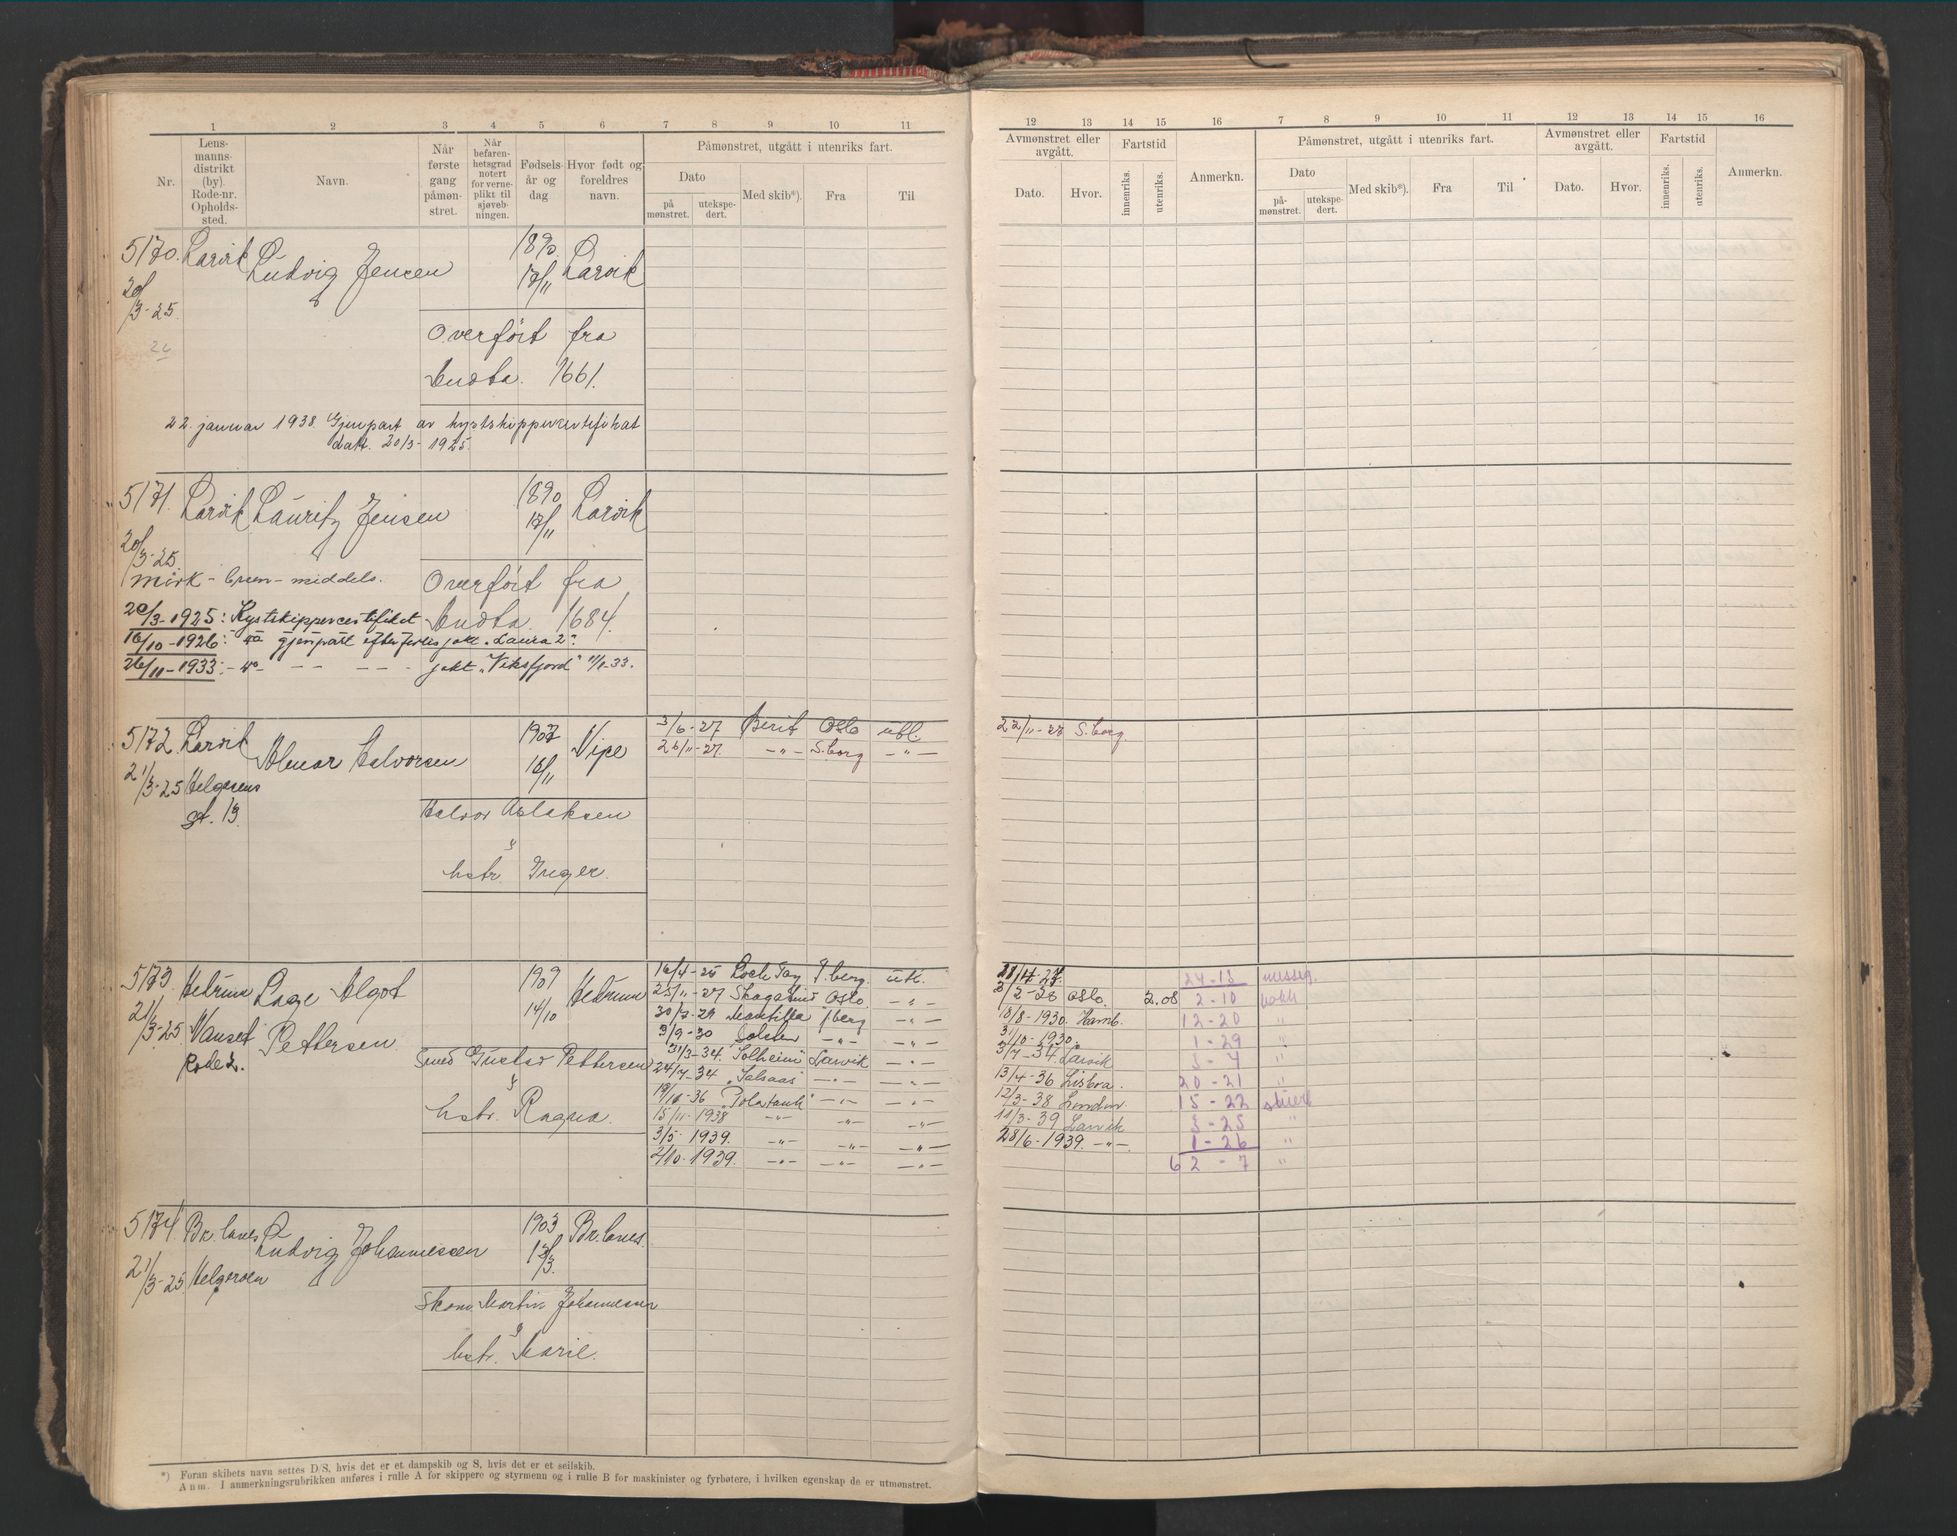 1 2 3 4 5 6 7 8 9 10 11
Nr.
Lens-
manns-
distrikt
(by).
Rode-nr.
Opholds-
sted.
Navn.
Når
første
gang
påmøn-
stret.
Når
befaren-
hetsgrad
notert
for verne-
plikt til
sjøveb-
ningen.
Fødsels-
år og
dag.
Hvor født og
foreldres
navn.
Påmønstret, utgått i utenriks fart.
Dato
på
mønstret.
utekspe-
dert.
Med skib*).
Fra
Til
12 13 14 15 16 7 8 9 10 11 12 13 14 15 16
Avmønstret eller
avgått.
Dato.
Hvor.
Fartstid
innenriks.
utenriks.
Anmerkn.
Påmønstret, utgått i utenriks fart.
Dato
på-
mønstret.
utekspe-
dert.
Med skib*).
Fra
Til
Avmønstret eller
avgått.
Dato.
Hvor.
Fartstid
innenriks.
utenriks.
Anmerkn.
5170. Larvik Ludvig Jensen 1890 17/11 Larvik
20/3-25
Overført fra
1661.
22. januar 1938. Gjenpart av kystskippercertifikat
dat. 20/3-1925.
5171. Larvik Lauritz Jensen 1890 17/11 Larvik
20/3-25.
mörk - brun - middels.
Overført fra
1684.
20/3-1925: Kystskippercertifikat
16/10-1926: gjenpart efter forlis jakt "Laura 2"
26/11-1933: - jakt "Viksfjord" 11/1-33.
5172 Larvik Almar Halvorsen 1907 16/11 Vipe 3/6-27 Berit Oslo utl. 22/11-27 S.borg.
26/11-27. -"- S.borg -"-
21/3-25 Helgesens
gt. 13.
Halvor Aslaksen
&
hstr. Inger.
5173 Hedrum Lage Algot 1909 14/10 Hedrum
21/3-25 Nanset Pettersen.
Rode 2.
Smed Gustav Pettersen
&
hstr. Ragna.
16/4-25 Loch Tay T.berg. utl. 24-13 messeg.
25/11-27 Oslo. -"- 2/2-28 Oslo. 2.08 2-10 kokk
30/7-29 T.berg -"- 18/8-1930. Hamb. 12-20 "
3/9-30 Solsten -"- -"- 31/10-1930. 1-29 "
31/3-34. "Solheim" Larvik -"- 3/7-34. Larvik 3-4 "
24/7-34 "Solsaas" -"- -"- 13/4-36 Lisboa. 20-21 "
19/10-36 "Polatank" -"- -"- 12/3-38 London. 15-22 stuert
15/11-1938 -"- -"- -"- 11/3-39 Larvik 3-25 "
3/5-1939. -"- -"- -"- 28/6-1939. -"- 1-26 "
2/10-1939. -"- -"- -"- 62-7 "
5174 Br.lanes Ludvig Johannessen 1903 Br.lanes.
21/3-25 Helgeroen
Skom. Martin Johannessen
&
hstr. Marie.
*) Foran skibets navn settes D/S, hvis det er et dampskib og S, hvis det er et seilskib.
Anm. I anmerkningsrubrikken anføres i rulle A for skippere og styrmenn og i rulle B for maskinister og fyrbøtere, i hvilken egenskap de er utmønstret.